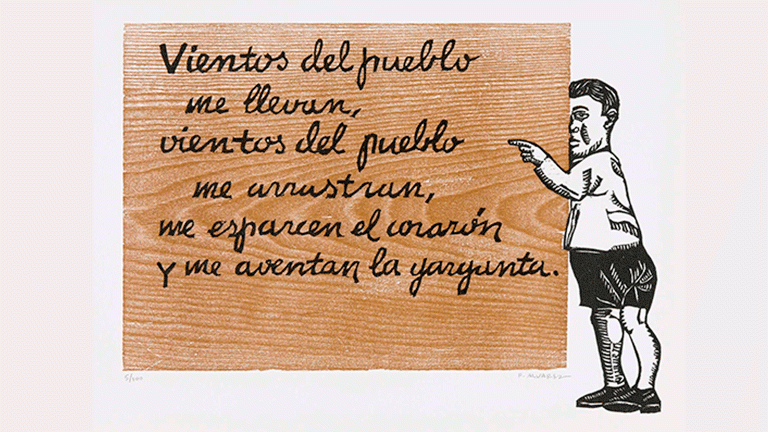 Vientos del pueblo
me llevan,
vientos del pueblo
me arrastran,
me esparcen el corazón
y me aventan la garganta.